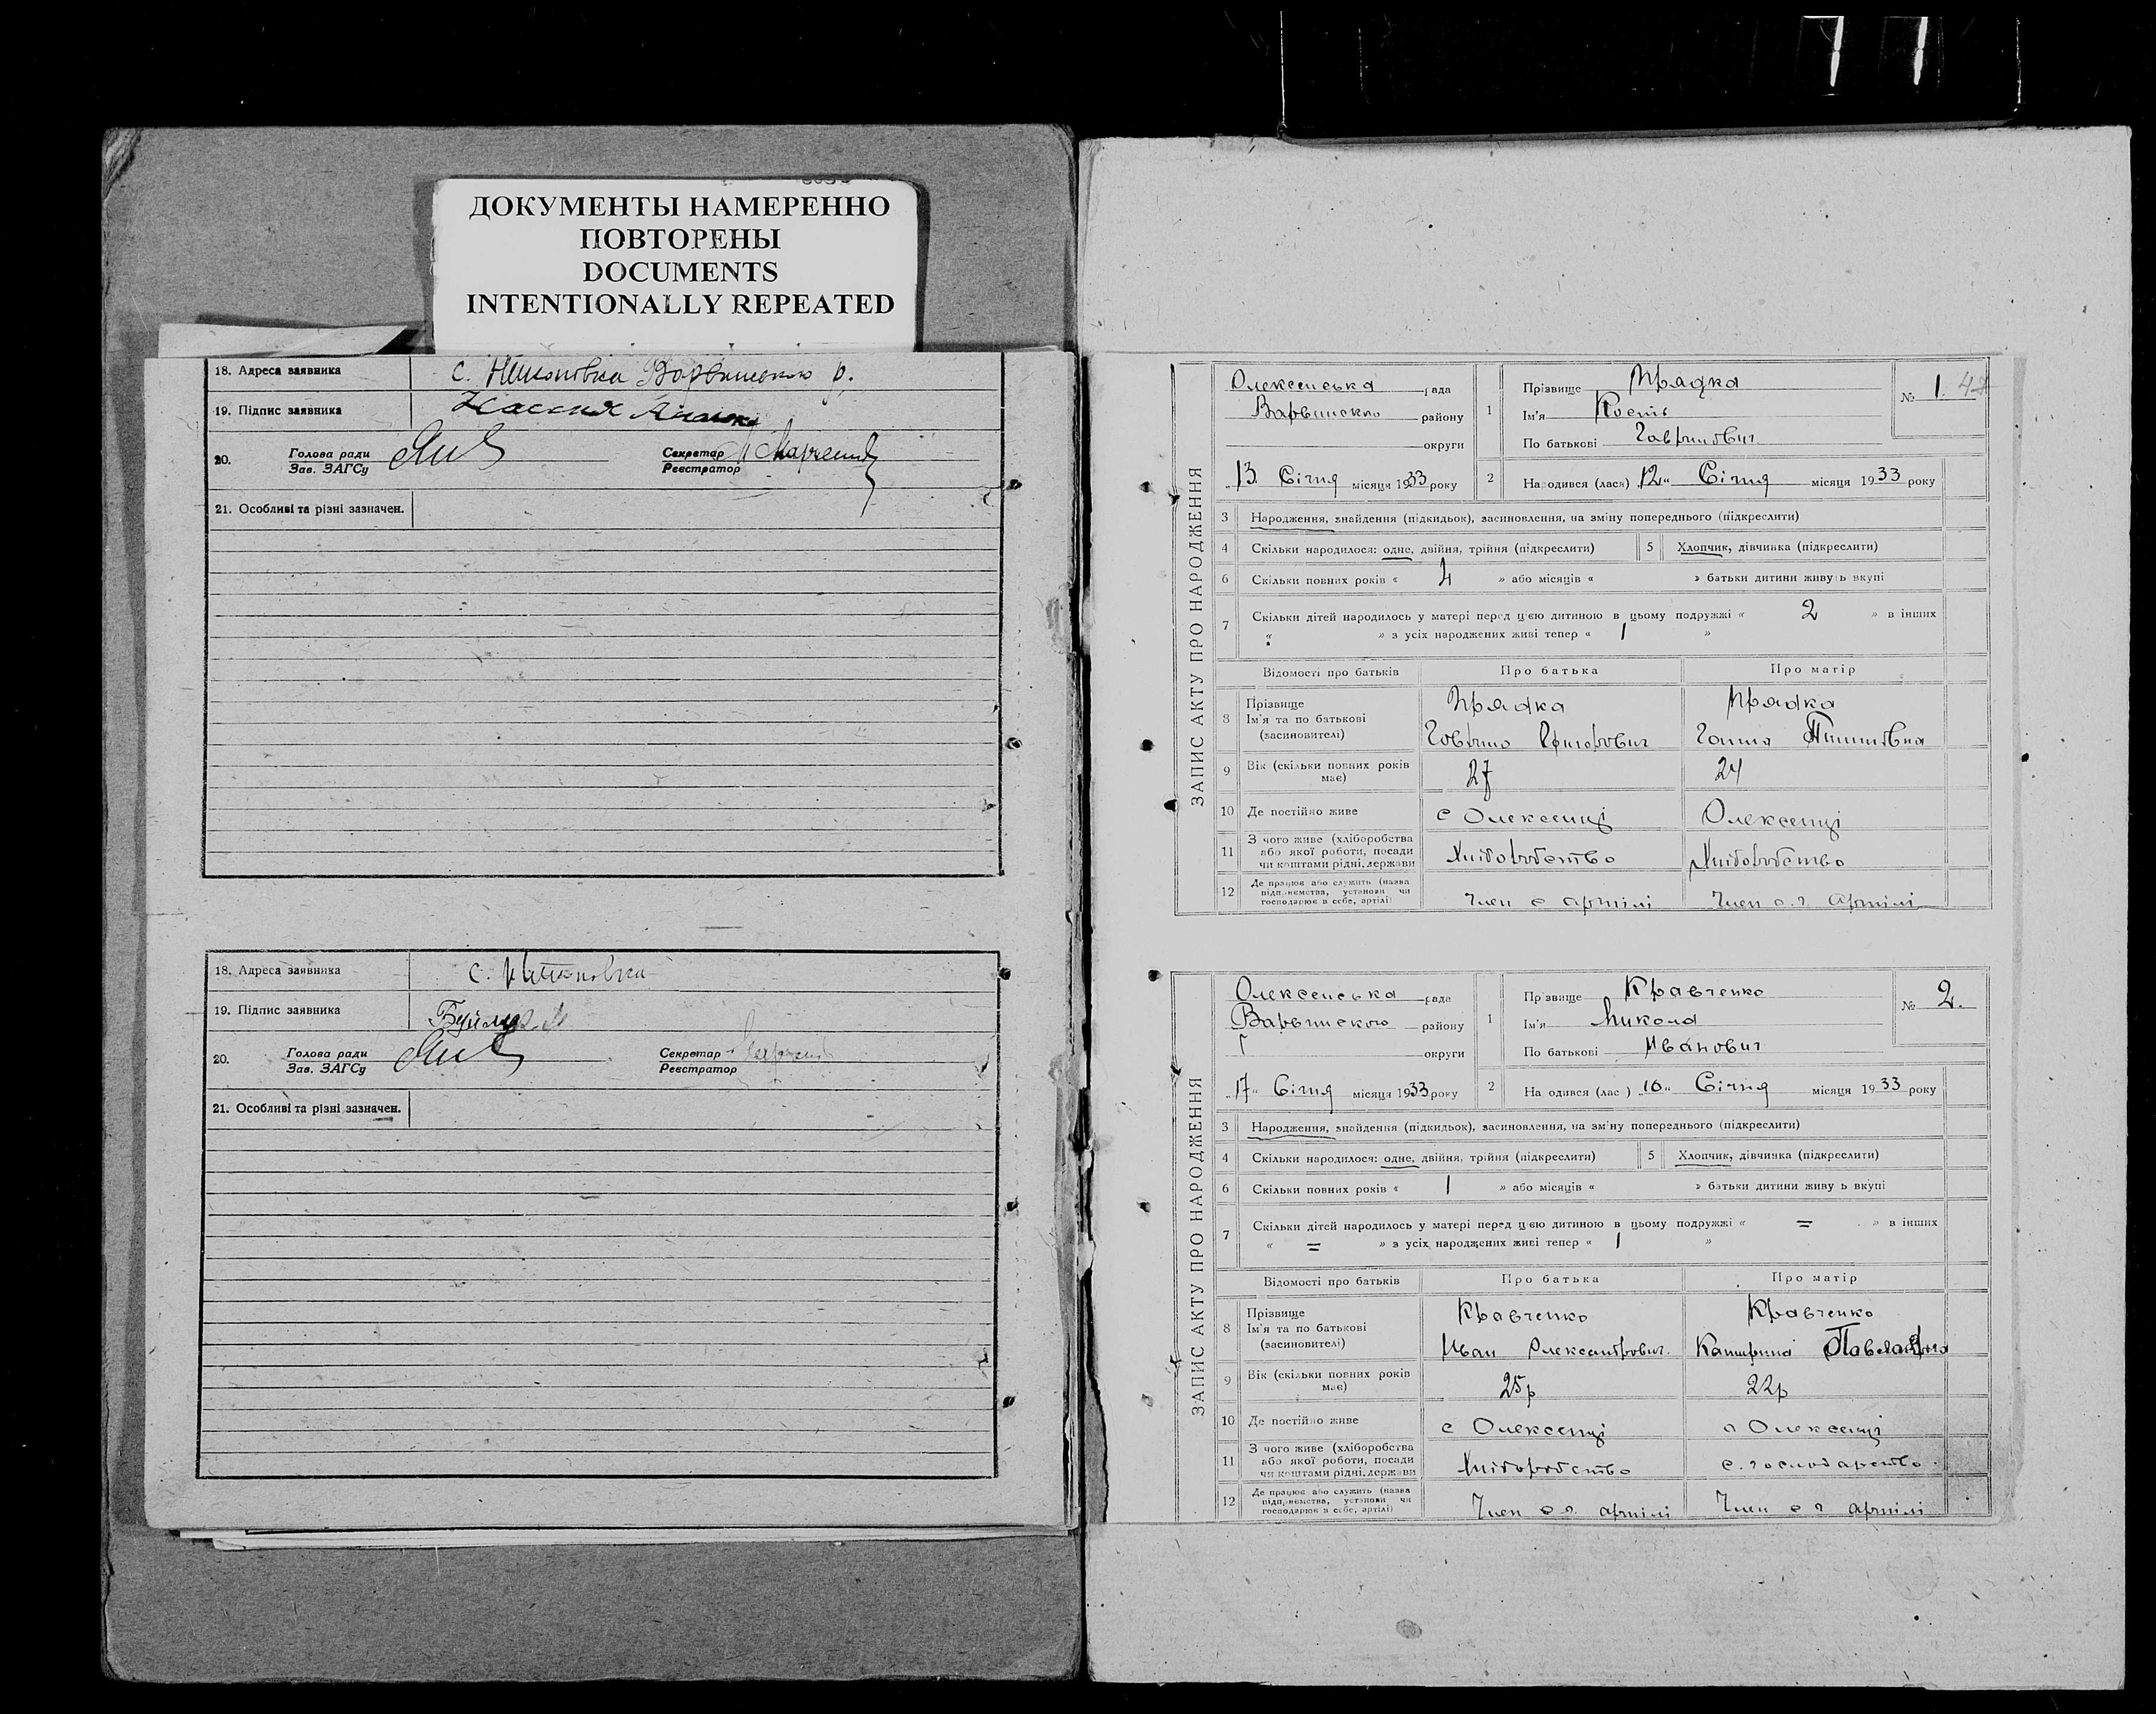 ДОКУМЕНТЫ НАМЕРЕННО
ПОВТОРЕНЫ
DOCUMENTS
INTENTIONALLY REPEATED
18. Адреса заявника с. Варвинського р.
19. Підпис заявника
20. Голова ради Секретар
Зав. ЗАГСу Реєстратор
21. Особливі та різні зазначен.
18. Адреса заявника с.
19. Підпис заявника
20. Голова ради Секретар
Зав. ЗАГСу Реєстратор
21. Особливі та різні зазначен.
ЗАПИС АКТУ ПРО НАРОДЖЕННЯ
Олексенська рада
Варвинсько району
округи
„13 Січня місяця 1933 року
1 Прізвище Прядка
Ім'я Кость
По батькові Гаврилович
№ 1. 47
2 Народився (лася) „12„ Січня місяця 1933 року
3 Народження, знайдення (підкидьок), засиновлення, на зміну попереднього (підкреслити)
4 Скільки народилося: одне, двійня, трійня (підкреслити) 5 Хлопчик, дівчинка (підкреслити)
6 Скільки повних років « 4 » або місяців « » батьки дитини живуть вкупі
7 Скільки дітей народилось у матері перед цією дитиною в цьому подружжі « 2 » в інших
« » з усіх народжених живі тепер « 1 »
Відомості про батьків Про батька Про матір
8 Прізвище Прядка Прядка
Ім'я та по батькові
(засиновителі) Григорович Ганна
9 Вік (скільки повних років має) 27 24
10 Де постійно живе с Олексенці Олексенці
11 З чого живе (хліборобства
або якої роботи, посади
чи коштами рідні, держави Хліборобство Хліборобство
12 Де працює або служить (назва
підприємства, установи чи
господарює в себе, артілі) Член с артілі Член с.г. артілі
ЗАПИС АКТУ ПРО НАРОДЖЕННЯ
Олексенська рада
Варвинского району
округи
„17„ Січня місяця 1933 року
1 Прізвище Кравченко
Ім'я Микола
По батькові Иванович
№ 2.
2 На одився (лас ) „16„ Січня місяця 1933 року
3 Народження, знайдення (підкидьок), засиновлення, на зміну попереднього (підкреслити)
4 Скільки народилося: одне, двійня, трійня (підкреслити) 5 Хлопчик, дівчинка (підкреслити)
6 Скільки повних років « 1 » або місяців « » батьки дитини живу ь вкупі
7 Скільки дітей народилось у матері перед цією дитиною в цьому подружжі « = » в інших
« = » з усіх народжених живі тепер « 1 »
Відомості про батьків Про батька Про матір
8 Прізвище Кравченко Кравченко
Ім'я та по батькові
(засиновителі) Иван Олександрович Катерина
9 Вік (скільки повних років має) 25р 22р
10 Де постійно живе с Олексенці с Олексенці
11 З чого живе (хліборобства
або якої роботи, посади
чи коштами рідні, держави Хліборобство с. господарство
12 Де працює або служить (назва
підприємства, установи чи
господарює в себе, артілі) Член с г. артілі Член с г артілі